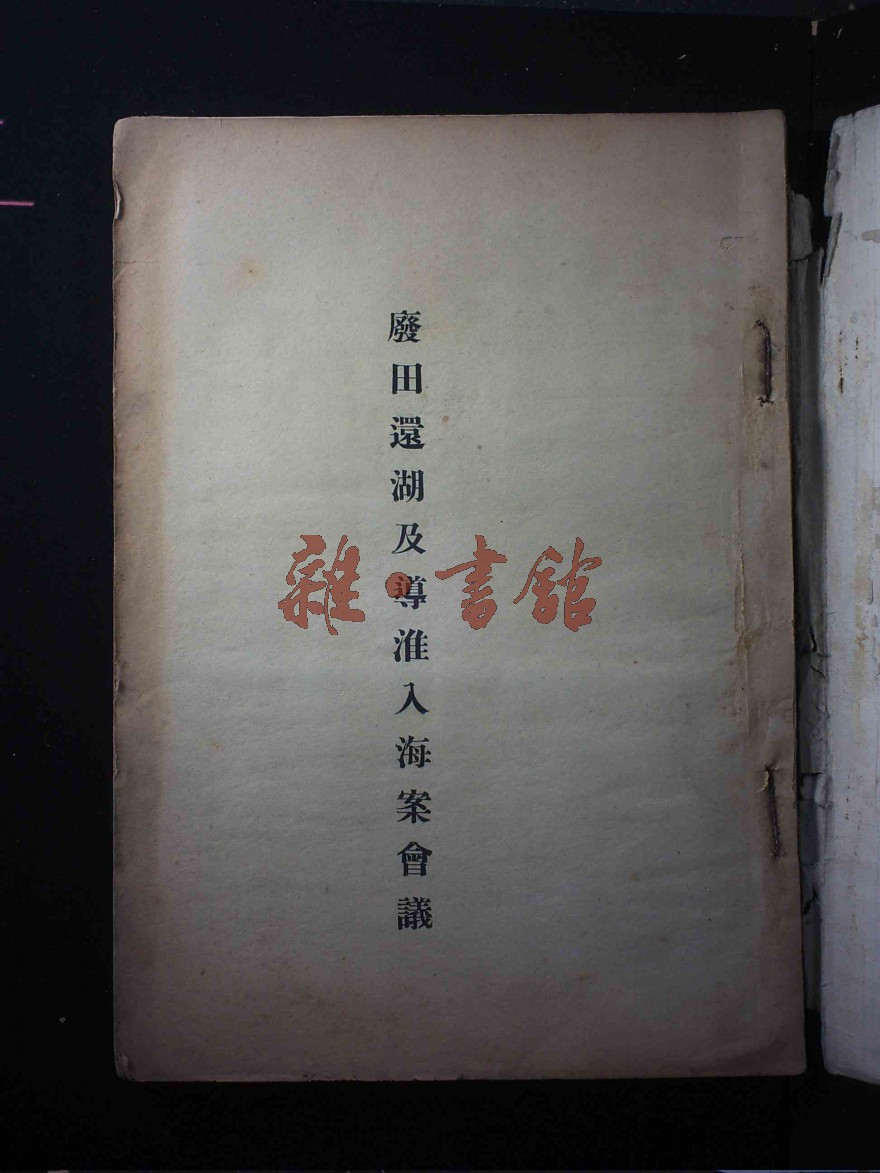 廢田還湖及導淮入海案會議
雜·書館